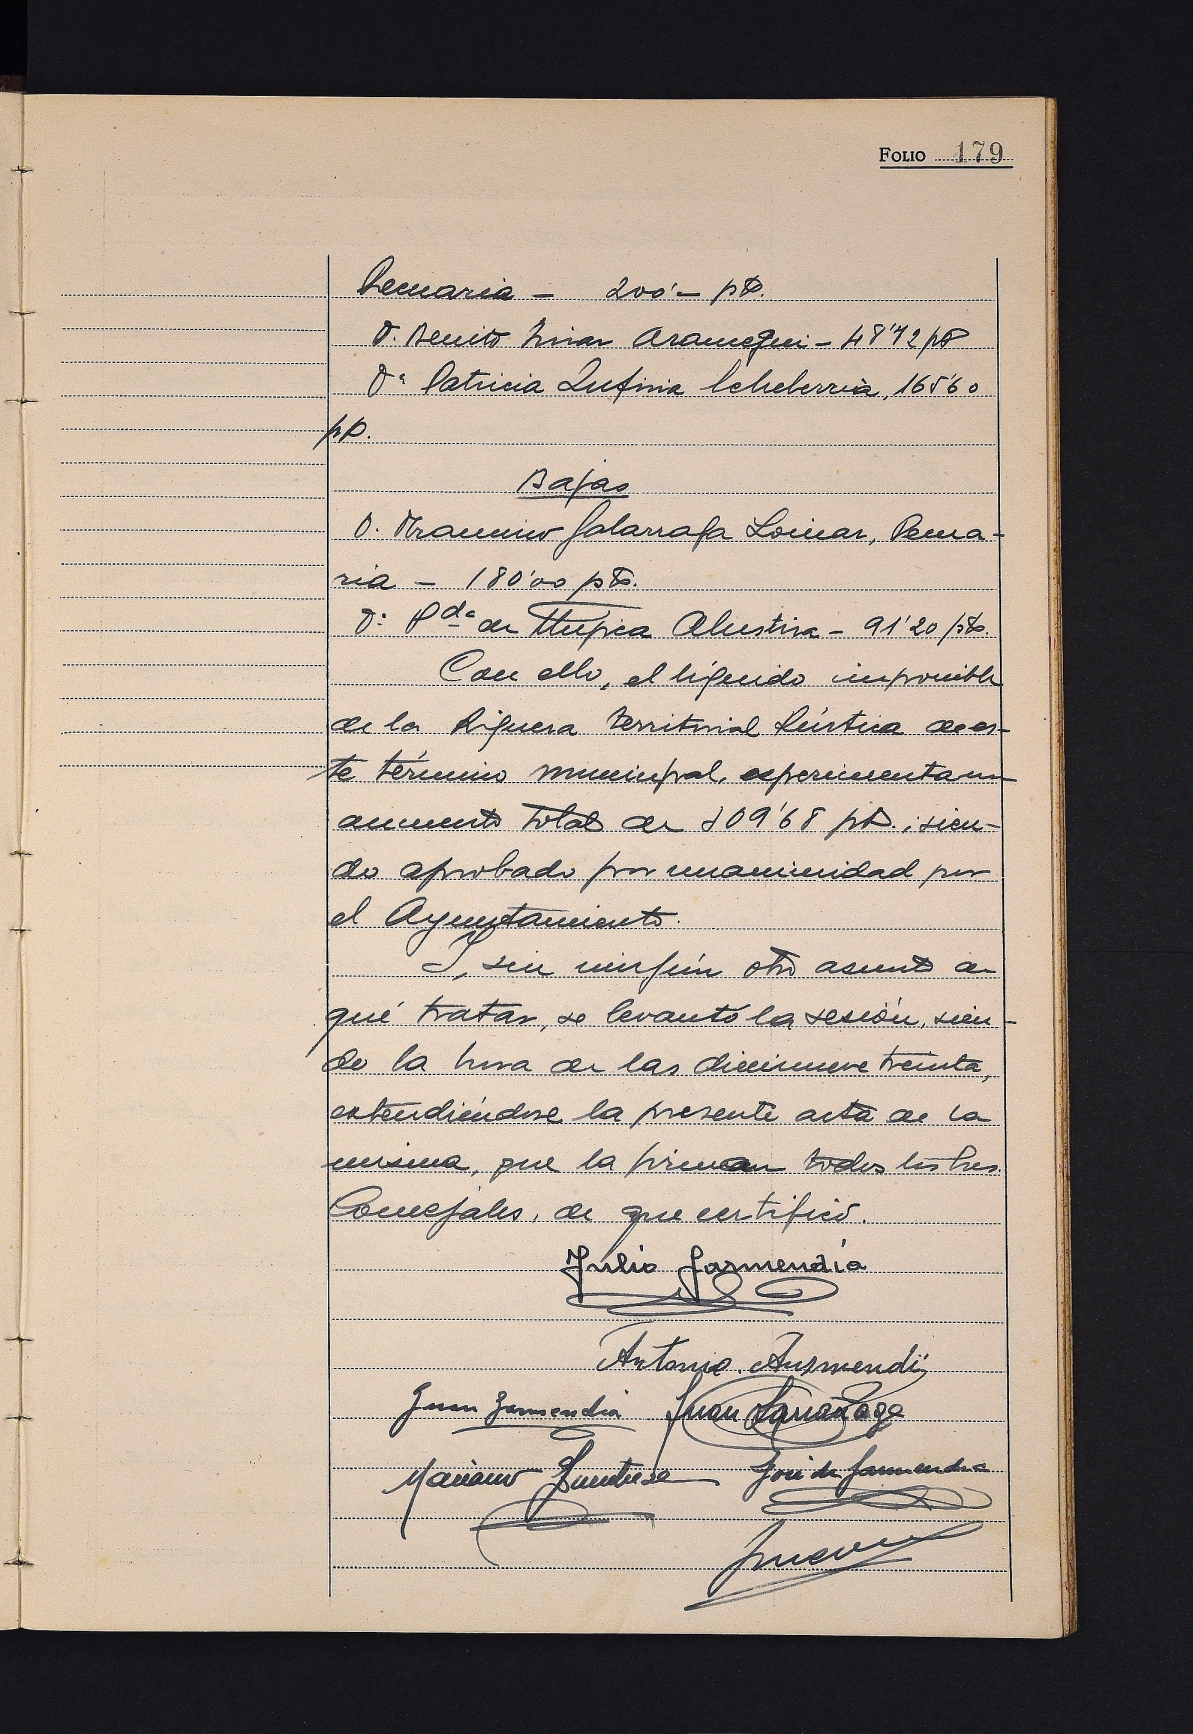 Folio 179
Pecuaria – 200'– pts.
D. Benito Aramegui – 48'72 pts
Dª Patricia Zufiria Echeberria, 165'60
pts.
Bajas
D. Francisco Galarraga Loinaz, Pecua-
ria – 180'00 pts.
Dª Vda de Alustiza – 91'20 pts.
Con ello, el líquido imponible
de la Riqueza territorial Rústica de es-
te término municipal, experimenta un
aumento total de 09'68 pts.; sien-
do aprobado por unanimidad por
el Ayuntamiento.
Y, sin ningún otro asunto de
qué tratar, se levantó la sesión, sien-
do la hora de las diecinueve treinta,
extendiéndose la presente acta de la
misma, que la firman todos los Sres.
Concejales, de que certifico.
Julio Garmendia
Antonio Ausmendi
Juan Garmendia Juan Larrañaga
Mariano José de Garmendia